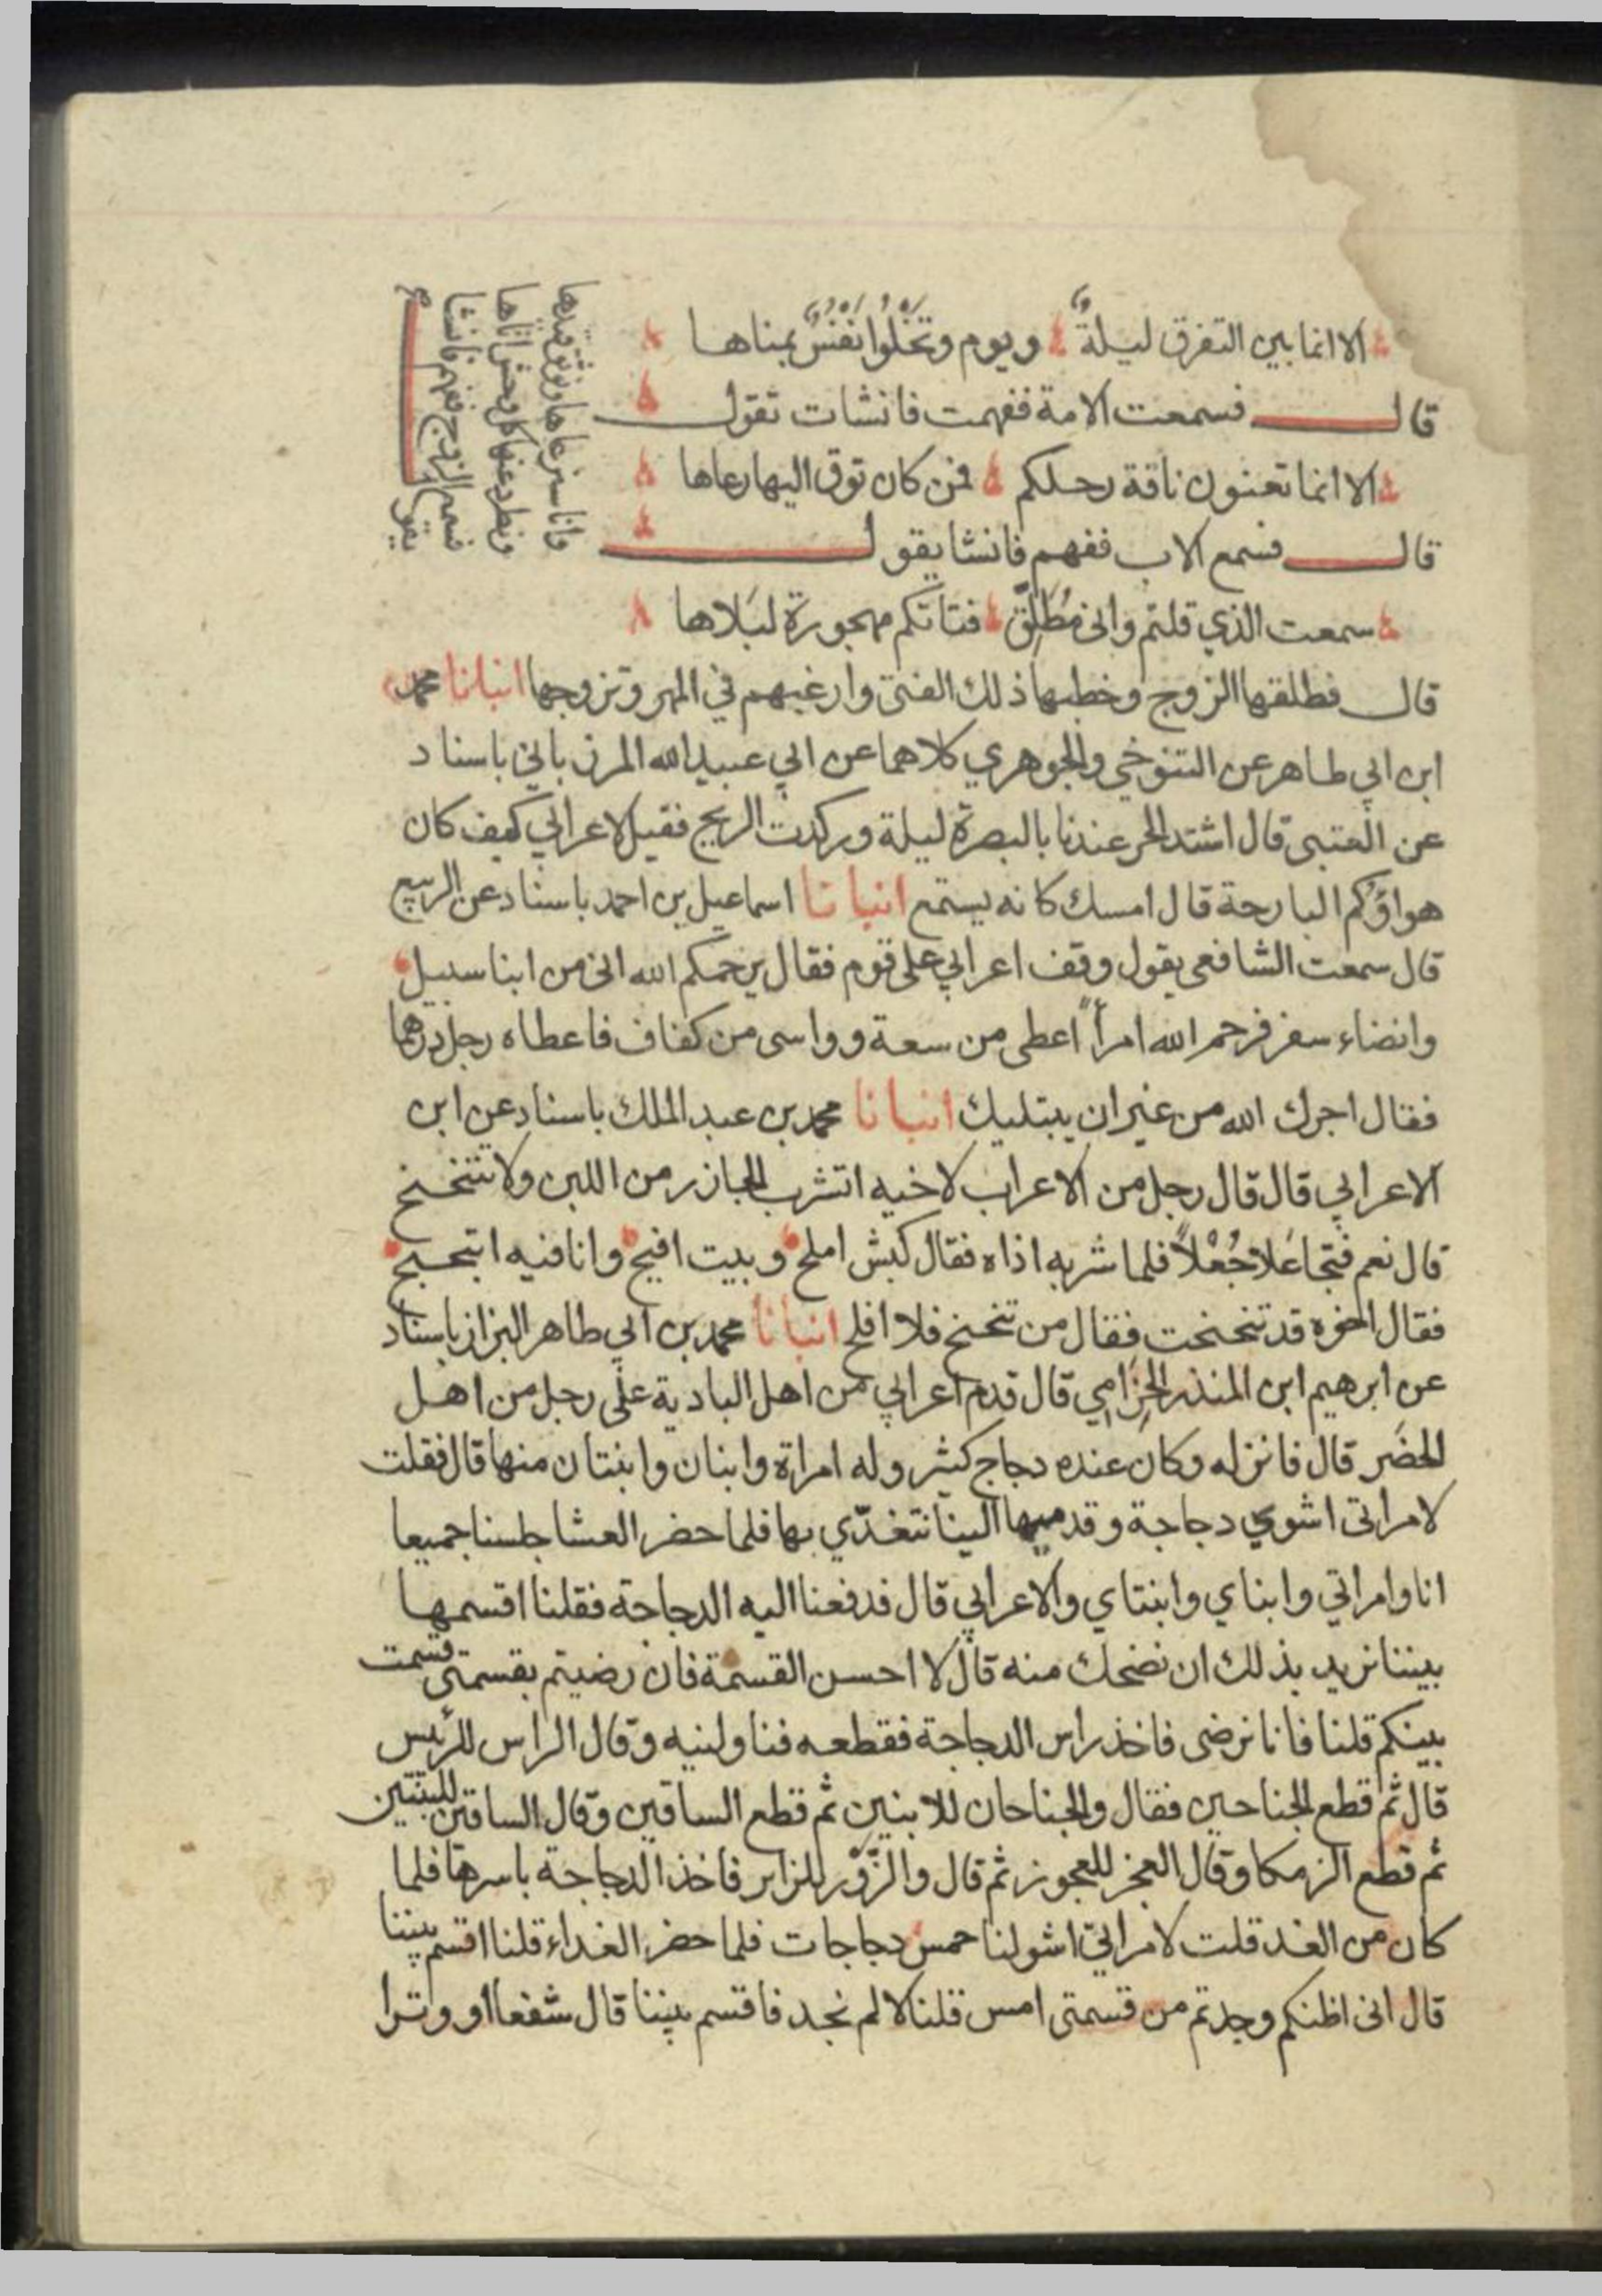 الا انما بين التفرق ليلةٌ ويوم وتَخْلُوا نَفْسٌ بمناها
قال فسمعت الامة ففهمت فانشات تقول
الا انما تعنون ناقة رحلكم فمن كان توق اليها رعاها
قال فسمع الاب ففهم فانشا يقول
سمعت الذي قلتم واني مُطَلِّق فتاتكم مهجورة لبَلاها
وانا سنرعاها ونوثق قيدها
ونطرد عنها كل وحش اتاها
فسمع الزوج ففهم فانشا
يقول
قال فطلقها الزوج وخطبها ذلك الفتى وارغبهم في المهر وتزوجها انبانا محمد
ابن ابي طاهر عن التنوخي والجوهري كلاهما عن ابي عبيد الله المرزباني باسناد
عن العتبى قال اشتد الحر عندنا بالبصرة ليلة وركدت الريح فقيل لاعرابي كيف كان
هواؤكم البارحة قال امسك كانه يستمع انبانا اسماعيل بن احمد باسناد عن الربيع
قال سمعت الشافعى يقول وقف اعرابي على قوم فقال يرحمكم الله انى من ابنا سبيل
وانضاء سفر فرحم الله امرأً اعطى من سعة وواسى من كفاف فاعطاه رجل درهما
فقال اجرك الله من غير ان يبتليك انبانا محمد بن عبد الملك باسناد عن ابن
الاعرابي قال قال رجل من الاعراب لاخيه اتشرب الحازر من اللبن ولا تتنحنح
قال نعم فتجاعَلا جُعْلاً فلما شربه اذاه فقال كبش املح وبيت افيح وانا فيه ابتحبح
فقال اخوه قد تنحنحت فقال من تنحنح فلا افلح انبانا محمد بن ابي طاهر البزاز باسناد
عن ابرهيم ابن المنذر الحِزَامِي قال قدم اعرابي من اهل البادية على رجل من اهل
الحضَر قال فانزله وكان عنده دجاج كثير وله امراة وابنان وابنتان منها قال فقلت
لامراتى اشوي دجاجة وقدميها الينا نتغدّي بها فلما حضر العشا جلسنا جميعا
انا وامراتي وابناي وابنتاي والاعرابي قال فدفعنا اليه الدجاجة فقلنا اقسمها
بيننا نريد بذلك ان نضحك منه قال لا احسن القسمة فان رضيتم بقسمتى قسمت
بينكم قلنا فانا نرضى فاخذ راس الدجاجة فقطعه فناولنيه وقال الراس للرئيس
قال ثم قطع الجناحين فقال والجناحان للابنين ثم قطع الساقين وقال الساقين للبنتين
ثم قطع الزمكا وقال العجز للعجوز ثم قال والزَّوْر للزاير فاخذ الدجاجة باسرها فلما
كان من الغد قلت لامراتي اشو لنا خمس دجاجات فلما حضر الغداء قلنا اقسم بيننا
قال انى اظنكم وجدتم من قسمتى امس قلنا لا لم نجد فاقسم بيننا قال شفعا او وترا